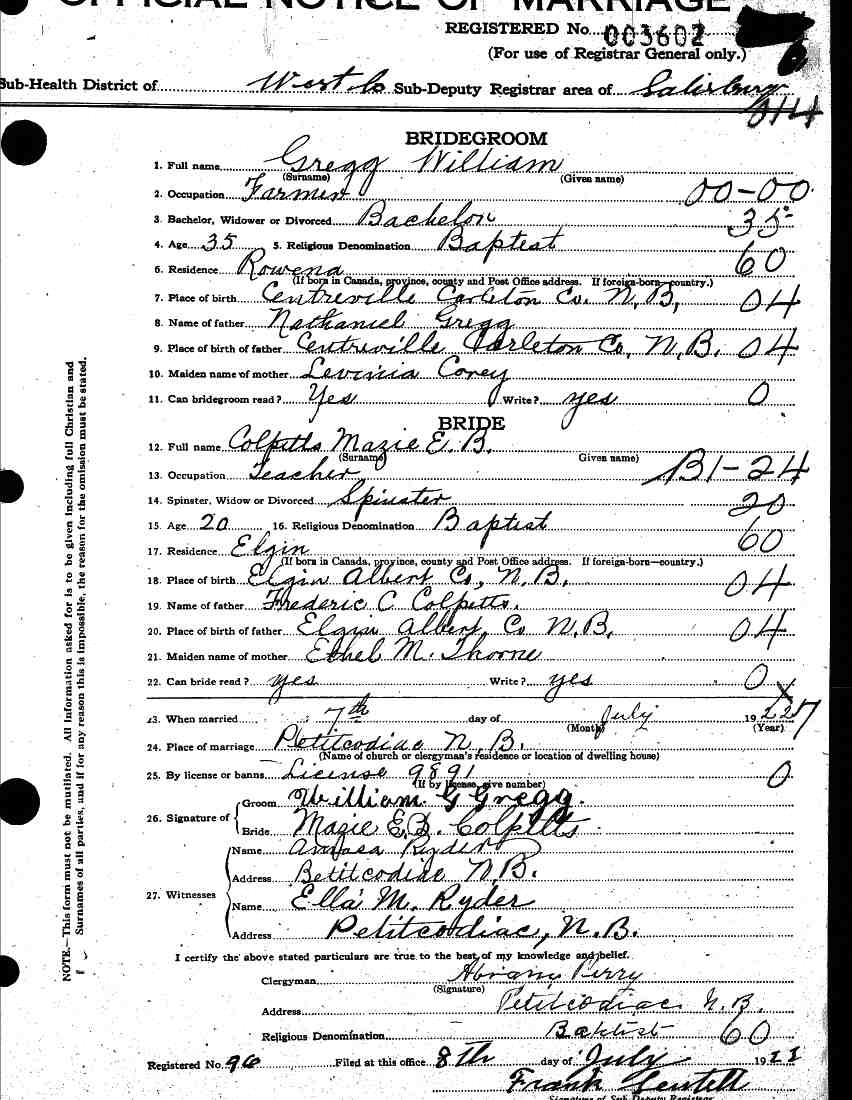 OFFICIAL NOTICE OF MARRIAGE
REGISTERED No. 003602
(For use of Registrar General only.)
Sub-Health District of West Co Sub-Deputy Registrar area of Salisbury
014
BRIDEGROOM
1. Full name Gregg William
(Surname) (Given name)
2. Occupation Farmer 00-00
3. Bachelor, Widower or Divorced Bachelor 35
4. Age 35 5. Religious Denomination Baptist 60
6. Residence Rowena
(If born in Canada, province, county and Post Office address. If foreign-born—country.)
7. Place of birth Centreville Carleton Co. N.B. 04
8. Name of father Nathaniel Gregg
9. Place of birth of father Centreville Carleton Co, N.B. 04
10. Maiden name of mother Levinia Corey
11. Can bridegroom read? Yes Write? yes 0
BRIDE
12. Full name Colpitts Mazie E. B.
(Surname) Given name)
13. Occupation Teacher B1-24
14. Spinster, Widow or Divorced Spinster 20
15. Age 20 16. Religious Denomination Baptist 60
17. Residence Elgin
(If born in Canada, province, county and Post Office address. If foreign-born—country.)
18. Place of birth Elgin Albert Co, N.B. 04
19. Name of father Frederic C Colpitts.
20. Place of birth of father Elgin Albert Co N.B, 04
21. Maiden name of mother Ethel M. Thorne
22. Can bride read? yes Write? yes 0
23. When married 7th day of July 1922 7
(Month) (Year)
24. Place of marriage Petitcodiac N.B.
(Name of church or clergyman's residence or location of dwelling house)
25. By license or banns License 9891 0
(If by license, give number)
26. Signature of Groom William G Gregg.
Bride Mazie E.B. Colpitts
27. Witnesses Name Ryder
Address Petitcodiac N.B.
Name Ella M. Ryder
Address Petitcodiac, N.B.
I certify the above stated particulars are true to the best of my knowledge and belief.
Clergyman Abram Perry
(Signature)
Address Petitcodiac N.B.
Religious Denomination Baptist 60
Registered No. 96 Filed at this office 8th day of July 1922
Frank
Signature of Sub-Deputy Registrar
NOTE.—This form must not be mutilated. All information asked for is to be given including full Christian and
Surnames of all parties, and if for any reason this is impossible, the reason for the omission must be stated.